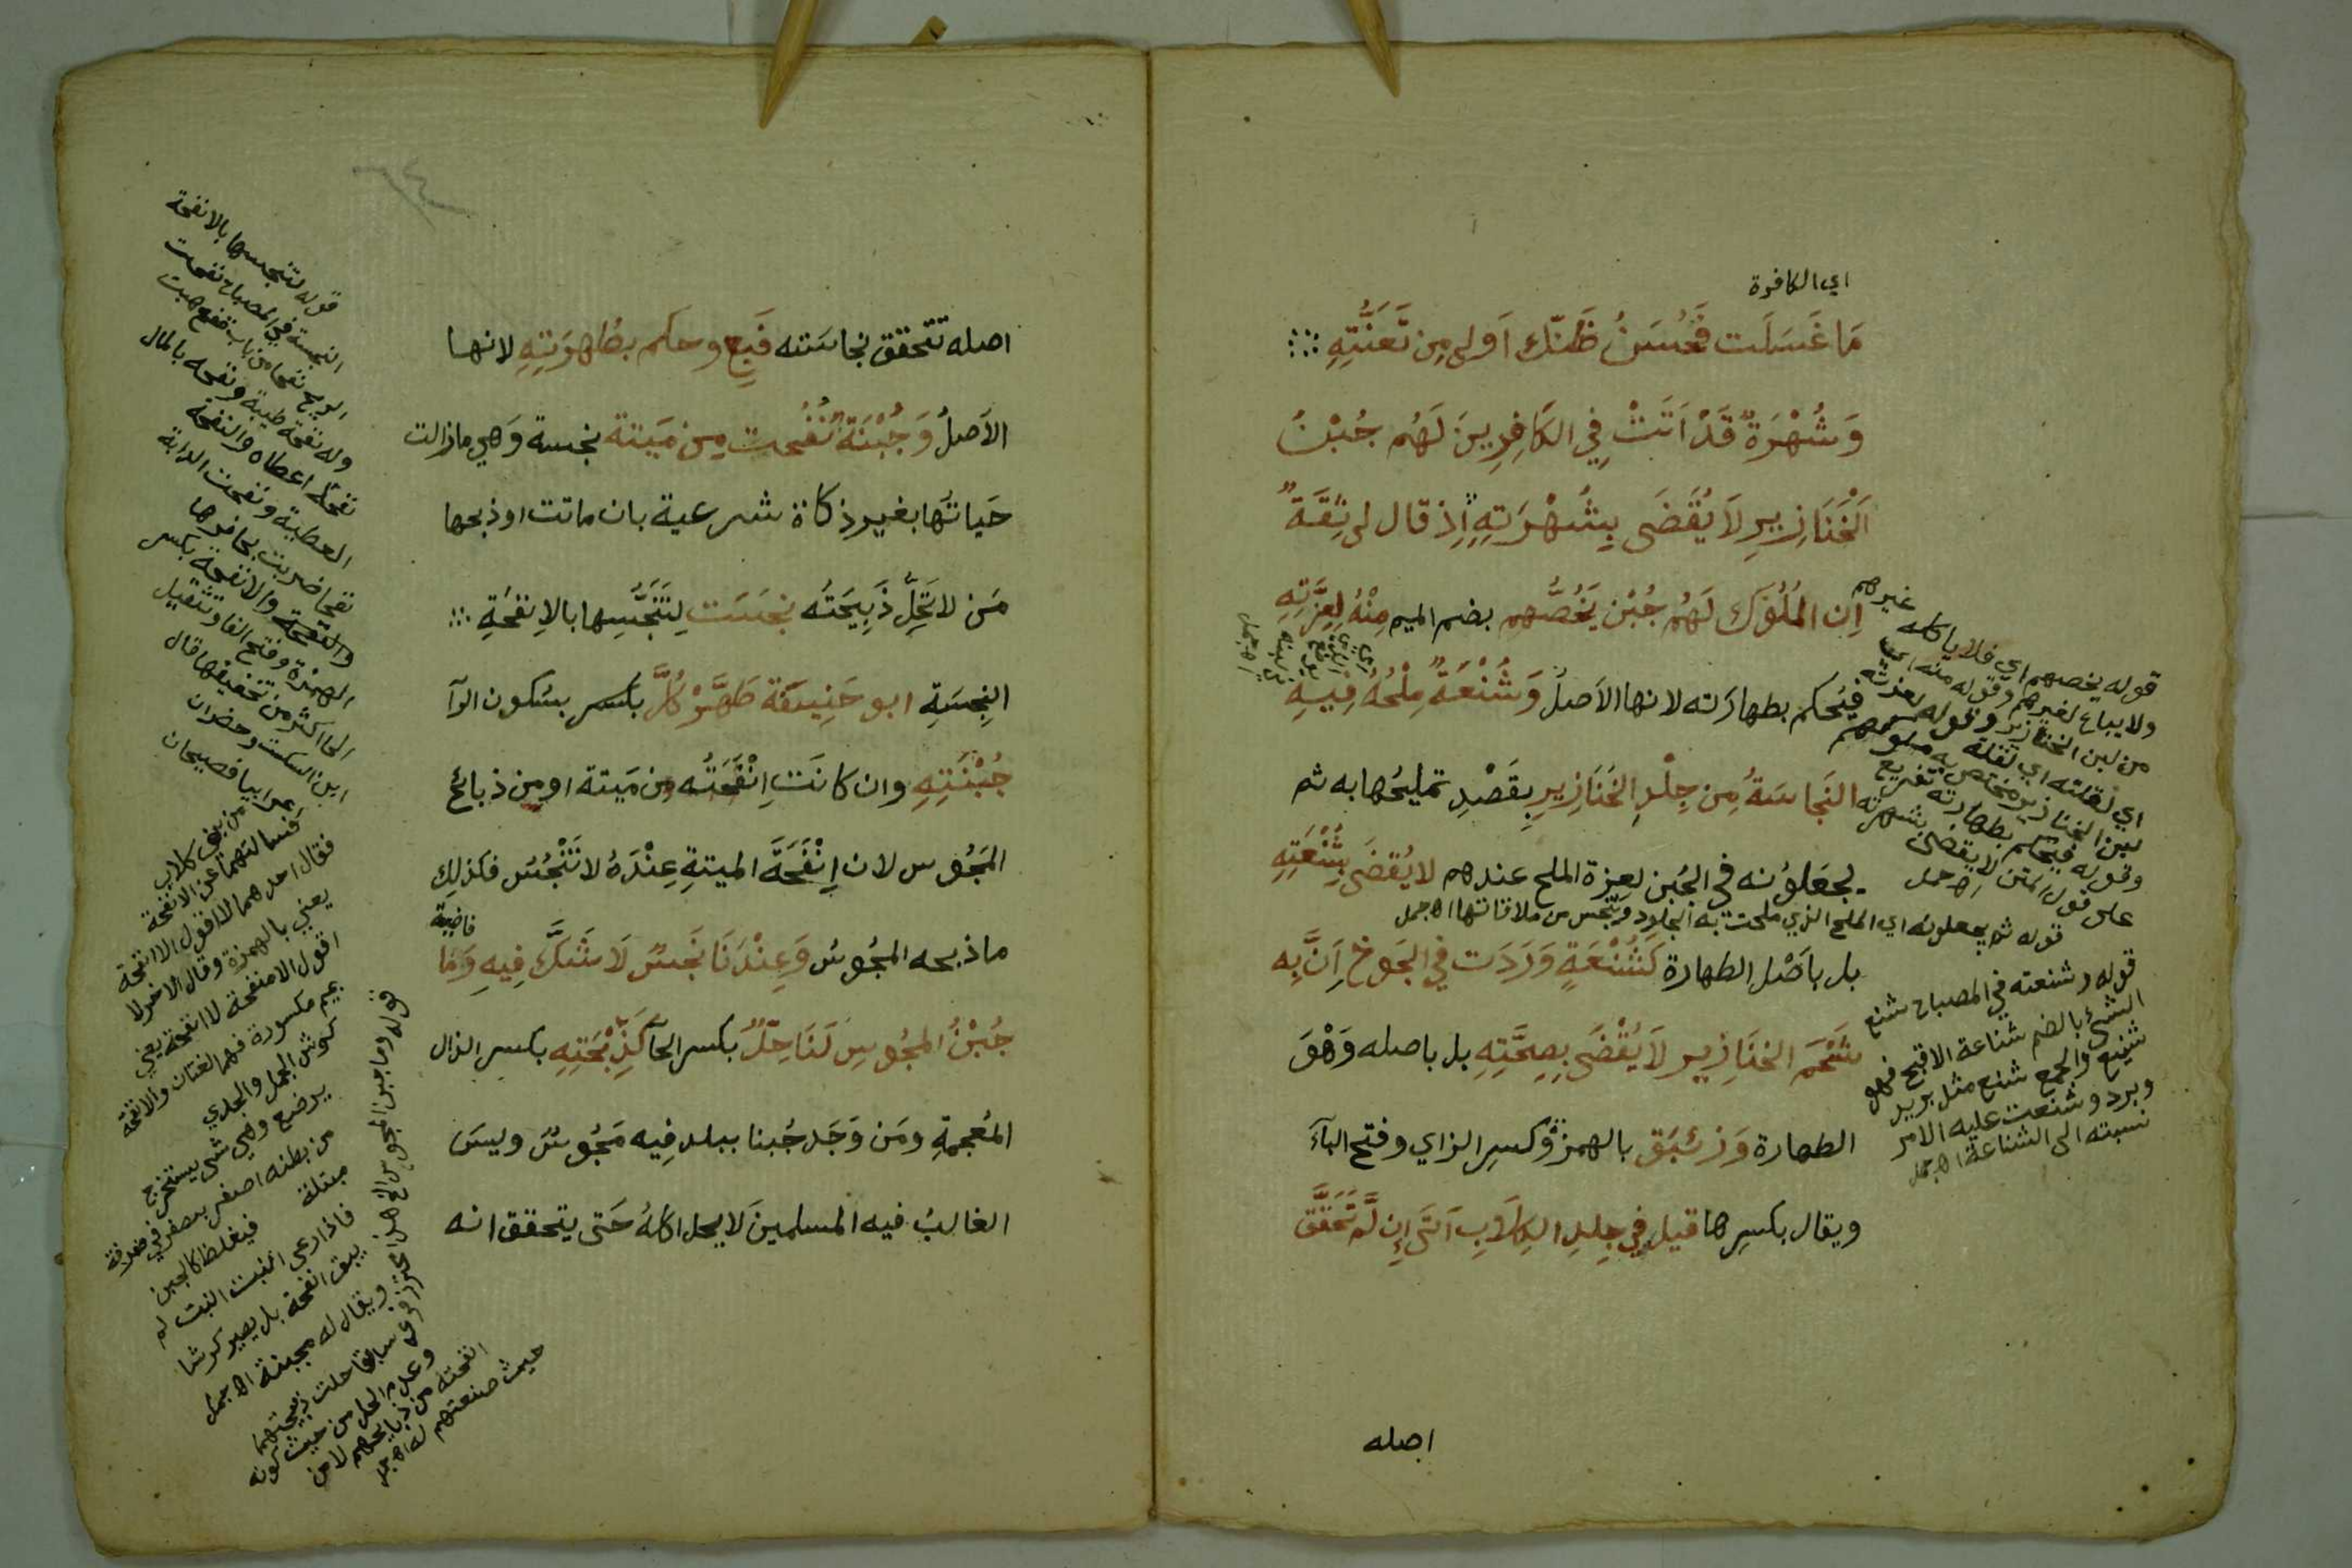 اي الكافرة
مَا غَسَلَت فَحُسْنُ ظَنّك اَولى مِن تَعَنُّتِهِ
وَشُهْرَةٌ قَدْ اَتَتْ فِي الكَافِرِينَ لَهُم جُبْنُ
اَلْخَنَازِيرِ لَا يُقْضَى بِشُهْرَتِهِ اِذ قال لى ثِقَةٌ
اِن المُلُوكَ لَهُم جُبْن يَخُصُّهم بضم الميم مِنْهُ لِعِزَّتِهِ
فيُحكم بطهارَته لانها الاَصلُ وَشُنْعَةٌ مِلْحُهُ فِيهِ
النَجاسَةُ مِن جِلْدِ الخَنَازِيرِ بِقَصْدِ تمليحُها به ثم
يجعَلوُنه في الجُبن لعِزة الملح عندهم لا يُقضَى بِشُنْعَتِهِ
بل باَصْلِ الطهارة كَشُنْعَةٍ وَرَدَت فِي الجَوخ اَنَّ بِه
شَحْمَ الخنَازِيرِ لَا يُقْضَى بِصِحَّتِهِ بل باصله وَهْوَ
الطهارة وَزِئبَق بالهمزة وكسرِ الزاي وفتح البآءَ
ويقال بكسرِها قيل فِي جِلدِ الكِلَابِ اَتَى اِن لَّم تَحَقَّق
قوله يخصهم اي فلا ياكله غيرهم
ولا يباع لغيرهم وقوله منه اي
من لبن الخنازير وقوله لعزته
اي لقلته اي لقلة
لبن الخنازير مختص به ملوكهم
وقوله فيحكم بطهارته تفريع
على قول المتن لا يقضى بشهرته
اه جمل
قوله ثم يجعلونه اي الملح الذي ملحت به الجلود وينجس من ملاقاتها اه جمل
قوله وشنعته في المصباح شنع
الشئ بالضم شناعة الاقبح فهو
شنيع والجمع شنع مثل بريد
وبرد وشنعت عليه الامر
نسبته الى الشناعة اه جمل
اصله
اصله تتحقق نجاسَته فَبِع وحكم بطُاهِرَيتِهِ لانها
الاَصلُ وَجُبْنَةٌ نُفُحت مِن مَيتة نجسة وَهي مازالت
حَياتُها بغير ذكاة شرعية بان ماتت او ذبحها
مَن لا تَحِلُّ ذَبِيحَتُه نجسَت لِتَنَجُّسِها بالاِنفَحَةِ
النِجسَةِ ابو حَنِيفَة طَهَّرْ كُلَّ باكسرِ بسُكون الرآ
جُبْنَتِهِ وان كانَت اِنْفَحَتُه مِن مَيتة او مِن ذبائح
المَجُوس لان اِنْفَحَةَ الميتةِ عِنْدَهُ لا تَنْجُسُ فكذلِك
ماذبحه المجُوسُ وَعِنْدَنَا نَجَسٌ لَا شَكَّ فِيهِ وَمَا
جُبْنُ المجُوسِ لَنَا حِلٌّ بكسر الحآ كَذِبْحَتِهِ بكسر الذال
المُعجمةِ ومَن وَجَد جُبنا ببلدٍ فِيه مَجُوسٌ وليسَ
الغالبُ فيه المسلمينَ لا يحل اكلهُ حَتى يتحقق انه
قوله لتنجسها بالانفحة
النجسة في المصباح نفحت
الريح نفحا من باب نفع هبت
وله نفحة طيبة ونفحه بالمال
نفحا اعطاه والنفحة
العطية ونفحت الدابة
نفحا ضربت بحافرها
والنفحة والانفحة بكسر
الهمزة وفتح الفا وتثقيل
الحا اكثر من تخفيفها قال
ابن السكيت وحضران
اعرابيا فصيحان
من بني كلاب
فسالتهما عن الانفحة
فقال احدهما لا اقول الا انفحة
يعني بالهمزة وقال الاخر لا
اقول الا منفحة لا انفحة يعني
بميم مكسورة فهما لغتان والانفحة
كرش الجمل والجدي
يرضع وهي شئ يستخرج
من بطنه اصفر يعصر في صوفة
مبتلة فيغلظ كالجبن
فاذا رعى النبت لم
يبق انفحة بل يصير كرشا
ويقال له مجبنة اه جمل
قوله وما جبن المجوس الخ هذا محترز قوله سابقا حلت ذبيحتهما
وعلم الحل من حيث كونه
انفحته من ذبايحهم لا من
حيث صنعتهم له اه جمل